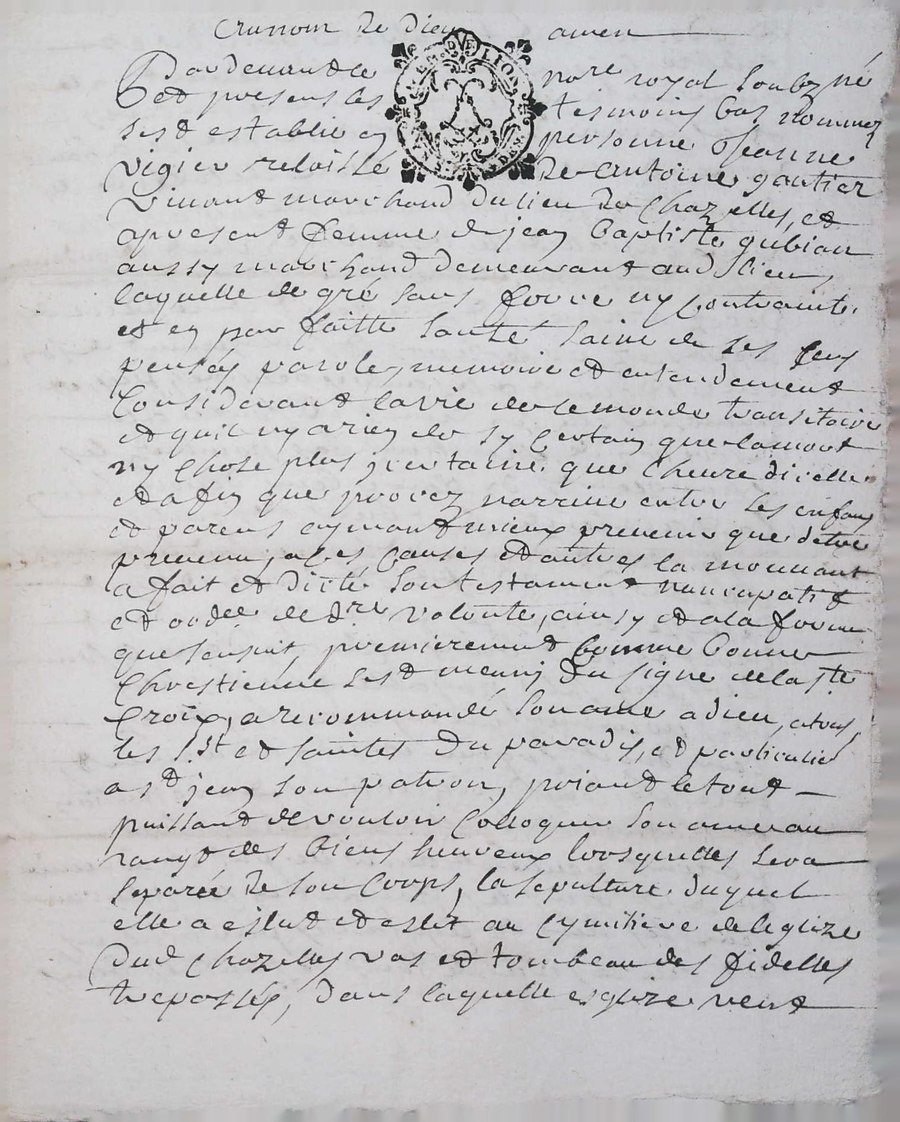 Au nom de dieu amen
Pardevant le no.re royal soubz né
et presens les tesmoins bas nommez
sest establie en personne Jeanne
Vigier relaissée de Antoine gautier
vivant marchand du lieu de Chazelles, et
apresent femme de jean baptiste gubian
aussy marchand demeurant aud lieu,
laquelle de gré sans force ny contrainte,
et en parfaitte santé saine de ses sens
pensées parole, memoire et entendement
Considerant la vie de le monde transitoire
et quil ny a rien de sy Certain que la mort
ny Chose plus jncertaine que lheure dicelle
et afin que procez narrive entre ses enfans
et parens aymant mieux prevenir que detre
prevenu, a ces causes et autres la mouvant
a fait et dicté son testament nuncupatif
et ordre de d.re volonté, ainsy et a la forme
que sensuit, premierement Comme bonne
Chrestienne sest munie du signe de la s.te
Croix, a recommandé son ame a dieu, a tous
les s.ts et saintes du paradis, et particulier
a s.t jean son patron, priant le tout
puissant de vouloir Colloquer son ame au
rang des biens heureux lors quelles sera
separée de son Corps, la sepulture duquel
elle a eslut et eslit au Cymitiere de leglize
dud Chazelles vas et tombeau des fidelles
trepassés, dans laquelle esglize veut